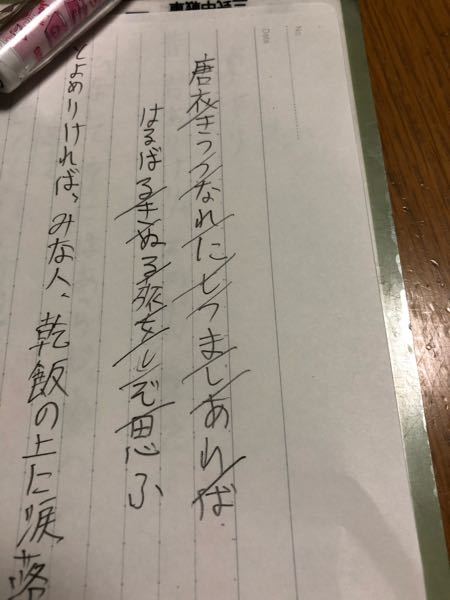 No.
Date
唐衣きつつなれにしつましあれば
はるばるきぬる旅をしぞ思ふ
とよめりければ、みな人、乾飯の上に涙落